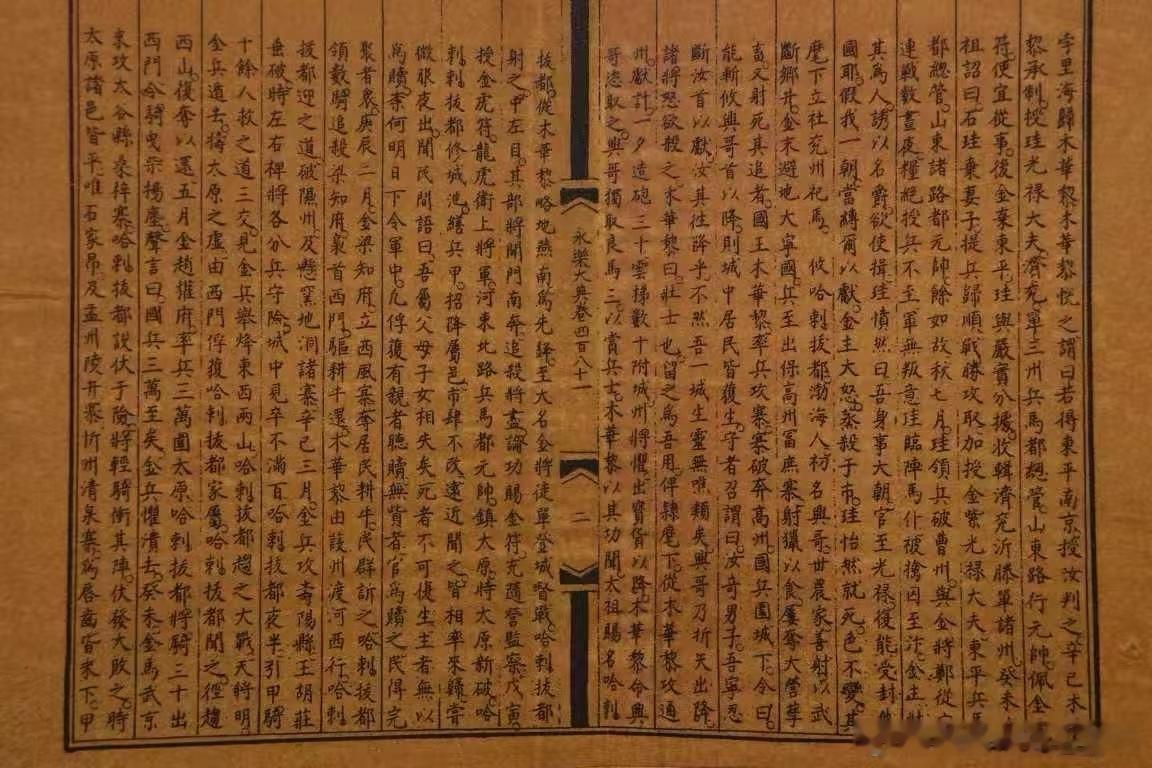 孛里海歸木華黎木華黎悅之謂曰若得東平南京授汝判之辛巳木
黎承制授珪光祿大夫濟兗單三州兵馬都總管山東路行元帥佩金
符便宜從事後金棄東平珪與嚴實分據收輯濟兗沂滕單諸州癸未
祖詔曰石珪棄妻子提兵歸順戰勝攻取加授金紫光祿大夫東平兵馬
都總管山東諸路都元帥餘如故秋七月珪領兵破曹州與金將鄭從宜
連戰數晝夜糧絕援兵不至軍無叛意珪臨陣馬仆被擒囚至汴金主壯
其爲人誘以名爵欲使揖珪憤然曰吾身事大朝官至光祿復能受封他
國耶假我一朝當縛爾以獻金主大怒蒸殺于市珪怡然就死色不變其
麾下立社兗州祀焉 攸哈剌拔都渤海人初名興哥世農家善射以武
斷鄉井金末避地大寧國兵至出保高州富庶寨射獵以食屢奪大營孳
畜又射死其追者國王木華黎率兵攻寨寨破奔高州國兵圍城下令曰
能斬攸興哥首以降則城中居民皆復生守者召謂曰汝奇男子吾寧忍
斷汝首以獻汝其往降乎不然吾一城生靈無噍類矣興哥乃折矢出降
諸將怒欲殺之木華黎曰壯士也留之爲吾用俾隸麾下從木華黎攻通
州獻計一夕造砲三十雲梯數十附城州將懼出寶貨以降木華黎命興
哥恣取之興哥獨取良馬三以賞兵士木華黎以其功聞太祖賜名哈剌
永樂大典卷四百八十一
二
拔都從木華黎略地燕南爲先鋒至大名金將徒單登城督戰哈剌拔都
射之中左目其部將開門南奔追殺將盡論功賜金符充隨營監察戊寅
授金虎符龍虎衛上將軍河東北路兵馬都元帥鎮太原時太原新破哈
剌剌拔都修城池繕兵甲招降屬邑市肆不改遠近聞之皆相率來歸嘗
微服夜出聞民間語曰吾屬父母子女相失矣死者不可復生生者無以
爲贖奈何明日下令軍中凡俘獲有親者聽贖無貲者官爲贖之民得完
聚者衆庚辰二月金梁知府立西風寨奪居民耕牛民群訴之哈剌拔都
領數騎追殺梁知府梟首西門驅耕牛還木華黎由葭州渡河西行哈剌
拔都迎之道破隰州及懸窯地洞諸寨辛巳三月金兵攻壽陽縣王胡莊
垂破時左右裨將各分兵守險城中見卒不滿百哈剌拔都夜半引甲騎
十餘人救之道三交見金兵舉烽東西兩山哈剌拔都趨之大戰天將明
金兵遁去搗太原之虛由西門俘獲哈剌拔都家屬哈剌拔都聞之徑趨
西山復奪以還五月金趙權府率兵三萬圍太原哈剌拔都將騎三十出
西門令騎曳柴揚塵聲言曰國兵三萬至矣金兵懼潰去癸未金馬武京
來攻太谷縣桑梓寨哈剌拔都說伏于險將輕騎衝其陣伏發大敗之時
太原諸邑皆平唯石家昂及盂州陵井寨忻州清泉寨爲唇齒皆未下甲